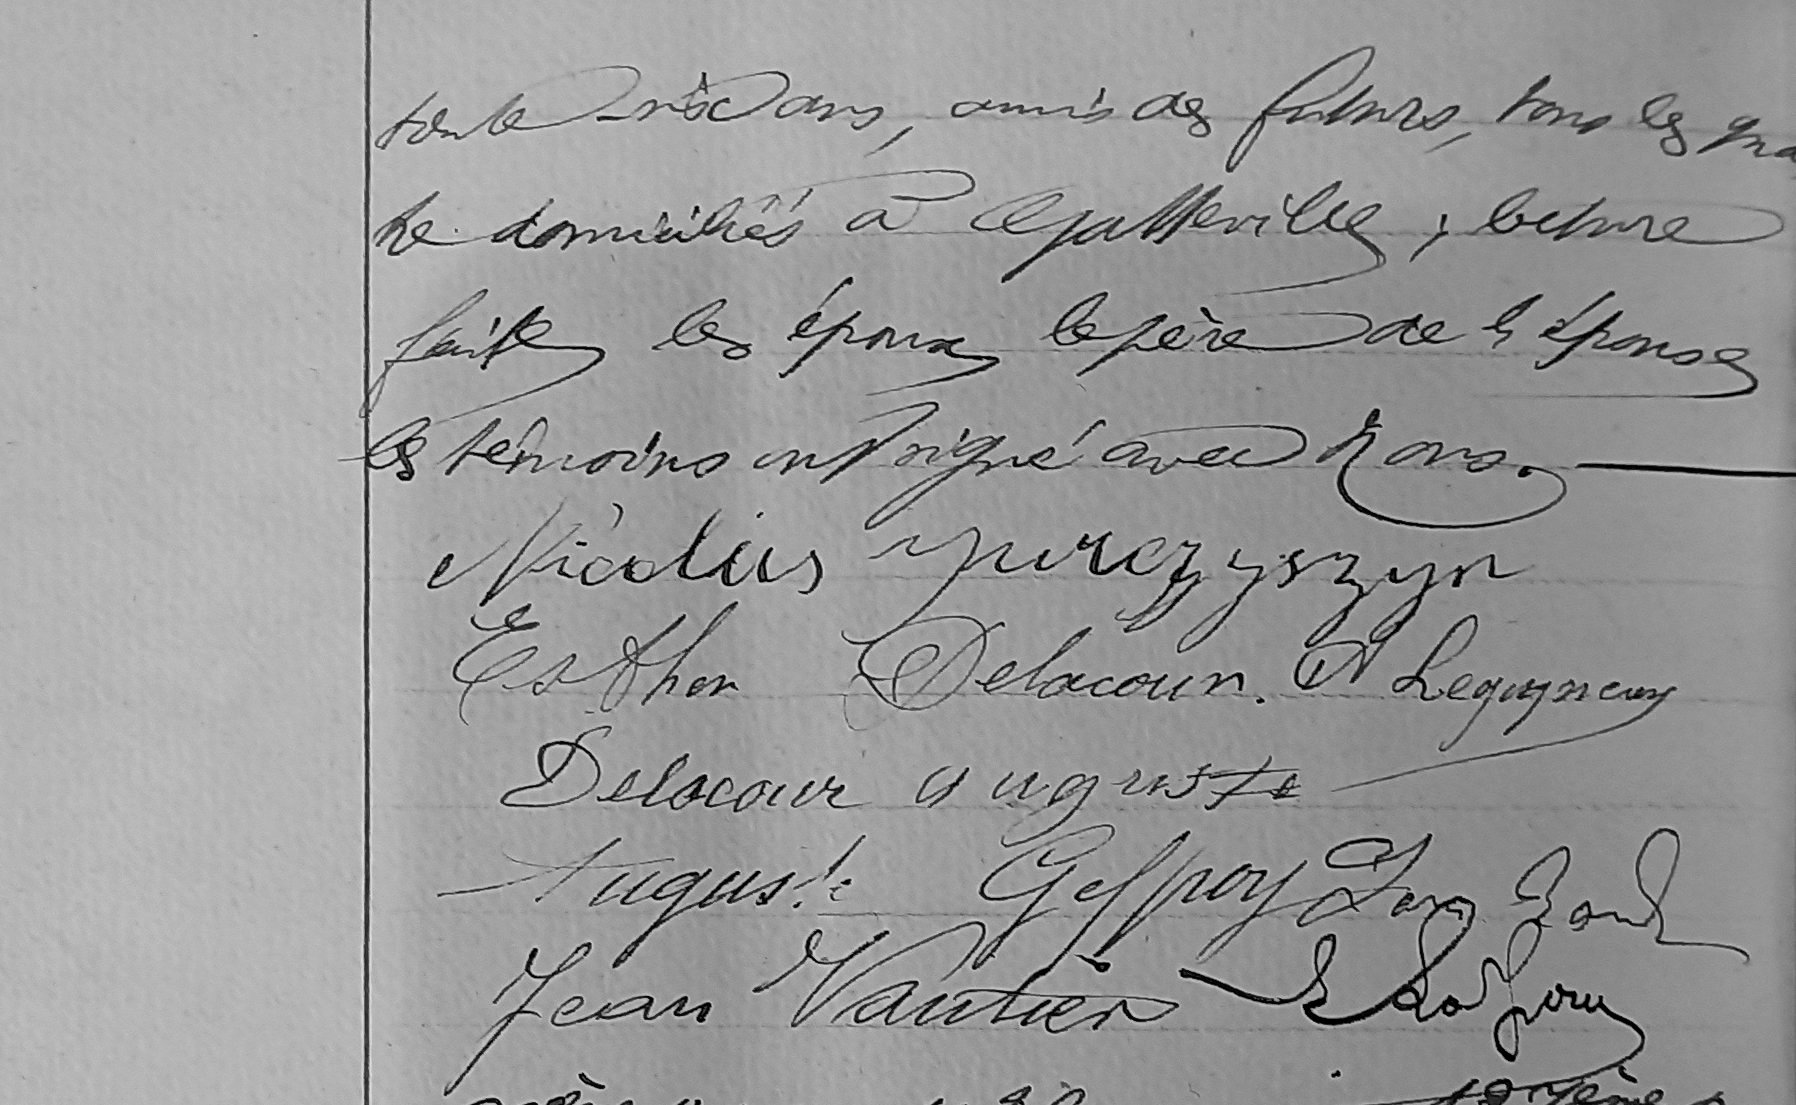 trente six ans, amis des futurs, tous les qua
tre domiciliés à Gatteville ; lecture
faite les époux le père de l'épouse
les témoins ont signé avec nous.
Nicolas Jurczyszyn
Esther Delacour. A Leguyneux
Delacour auguste
Auguste Geffroy
Jean Vautier